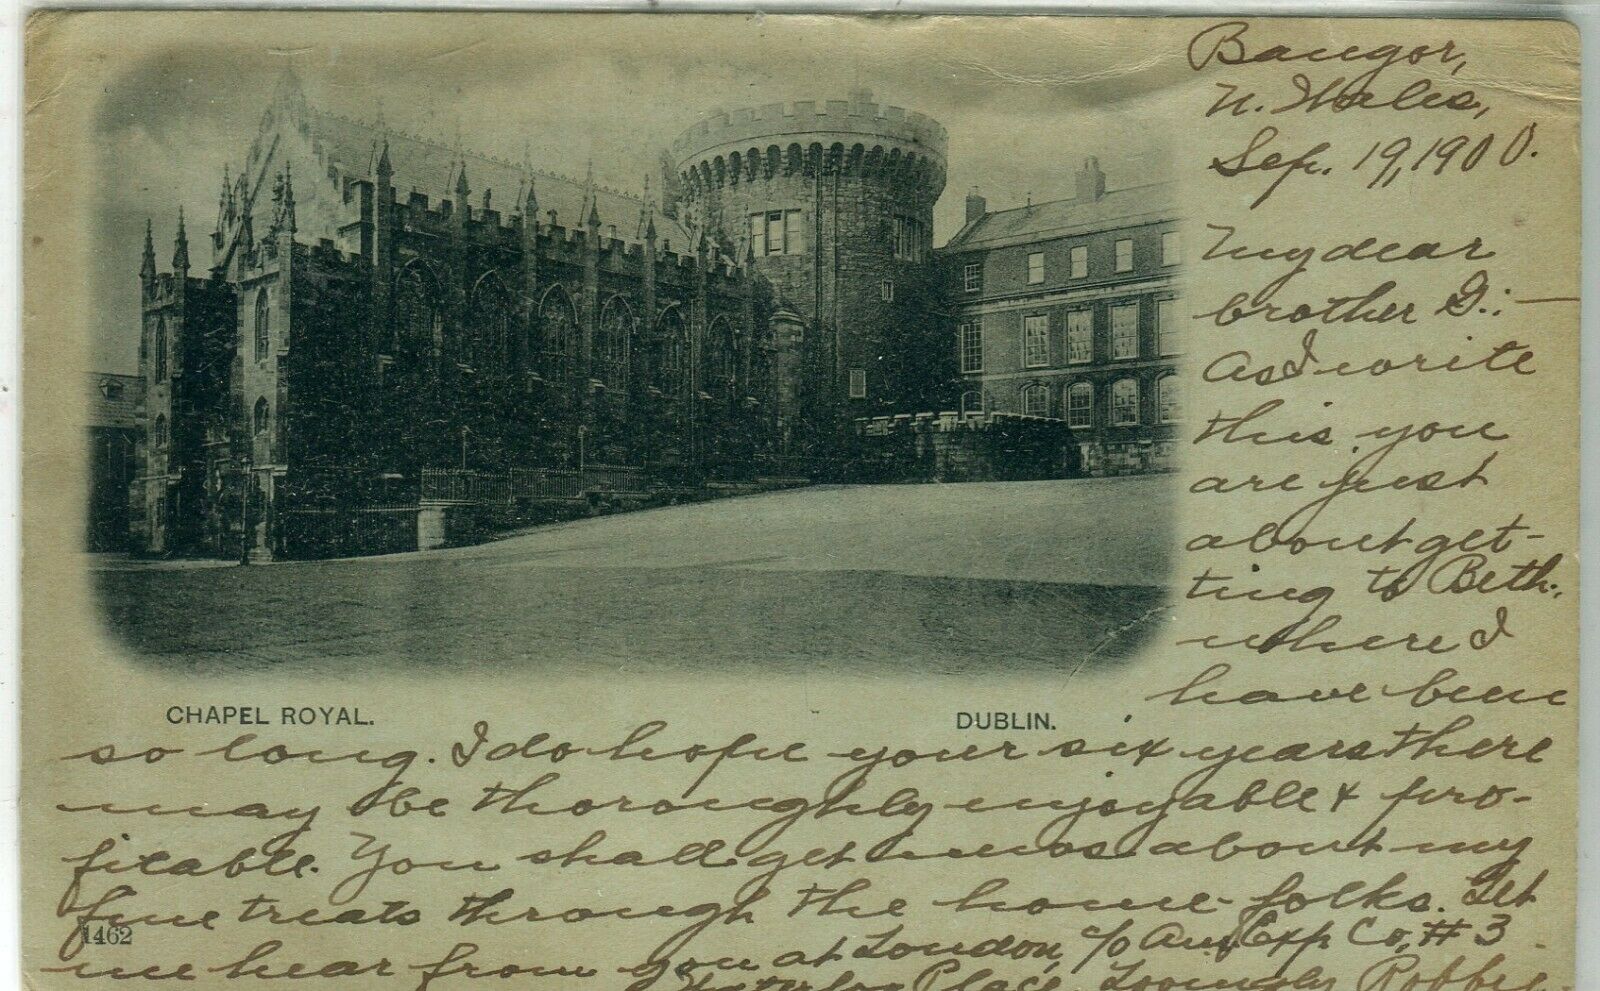 Bangor,
N. Wales,
Sep. 19, 1900.
My dear
brother G.: —
As I write
this you
are just
about get-
ting to Beth.,
where I
have been
CHAPEL ROYAL. DUBLIN.
so long. I do hope your six years there
may be thoroughly enjoyable & pro-
fitable. You shall get news about my
fine treats through the home-folks. Let
1462
me hear from you at London, c/o Am. Exp Co, # 3
Waterloo Place. Lovingly Robbie.